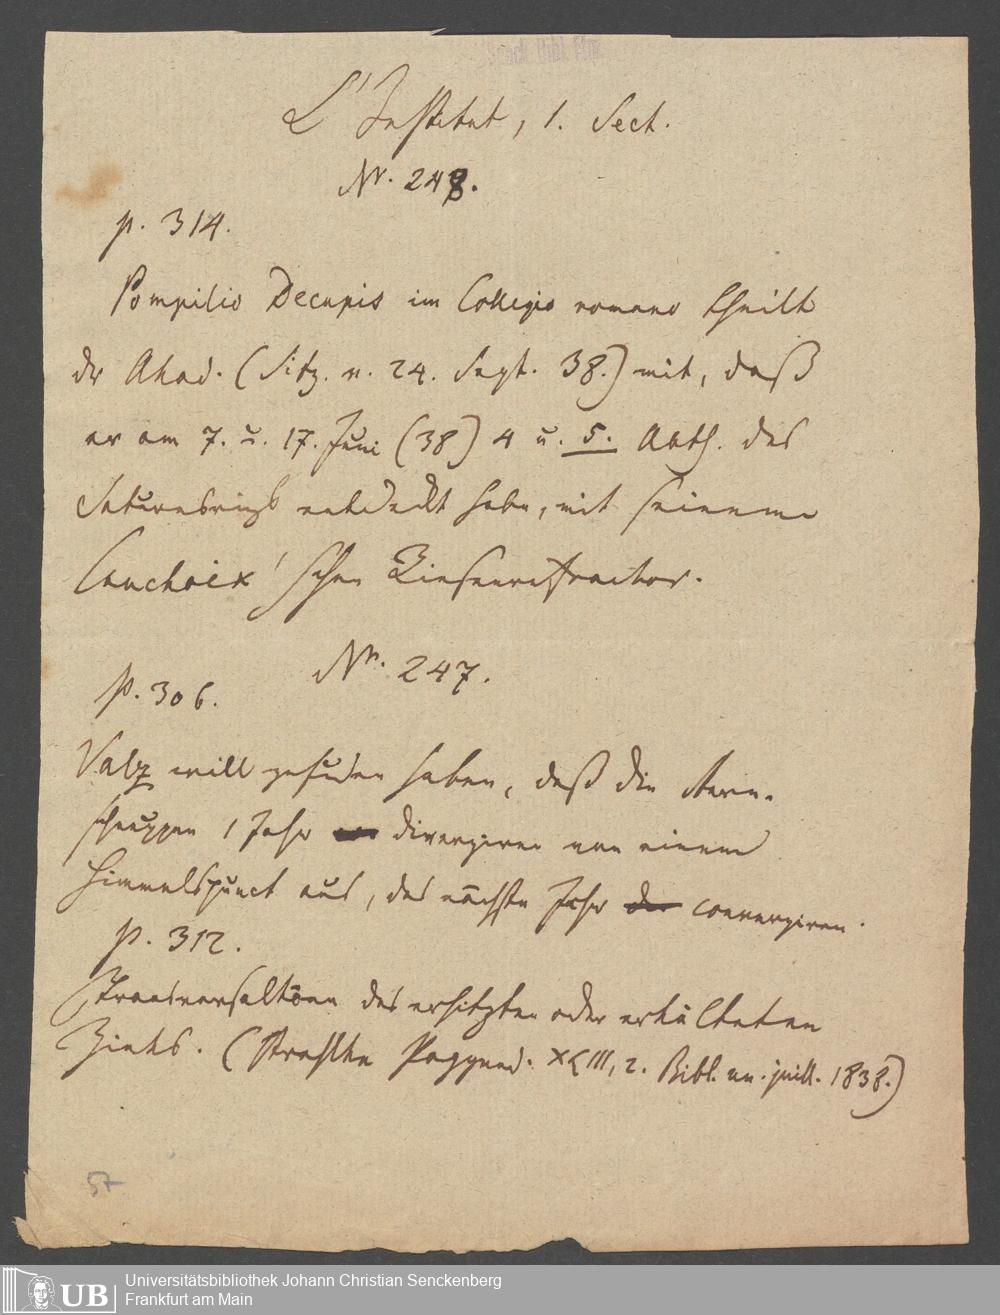 L'Institut, 1. Sect.
Nr. 248.
p. 314.
Pompilio Decupis im Collegio romano theilt
der Akad. (Sitz. v. 24. Sept. 38.) mit, daß
er am 7. u. 17. Juni (38) 4 u. 5. Abth. des
Saturnsrings entdeckt habe, mit seinem
Cauchoix'schen Riesenrefractor.
Nr. 247.
p. 306.
Valz will gefunden haben, daß die Stern-
schnuppen 1 Jahr divergiren von einem
Himmelspunct aus, das nächste Jahr convergiren.
p. 312.
Transversaltönen des erhitzten oder erkälteten
Zinks. (Strehlke Poggend. XLIII, 2. Bibl. un. juill. 1838.)
57
UB
Universitätsbibliothek Johann Christian Senckenberg
Frankfurt am Main